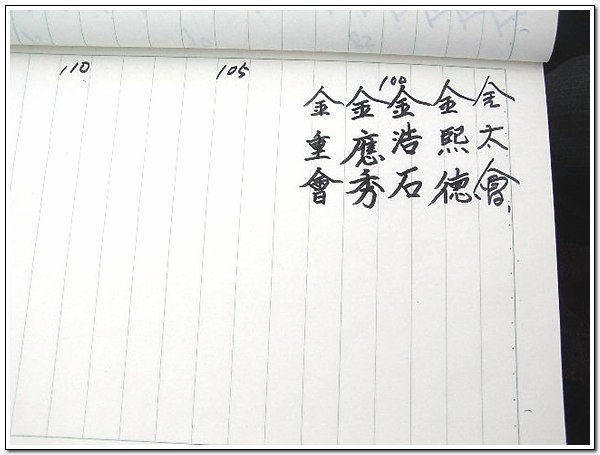 金太會
金熙德
100
金浩石
金應秀
金重會
105
110